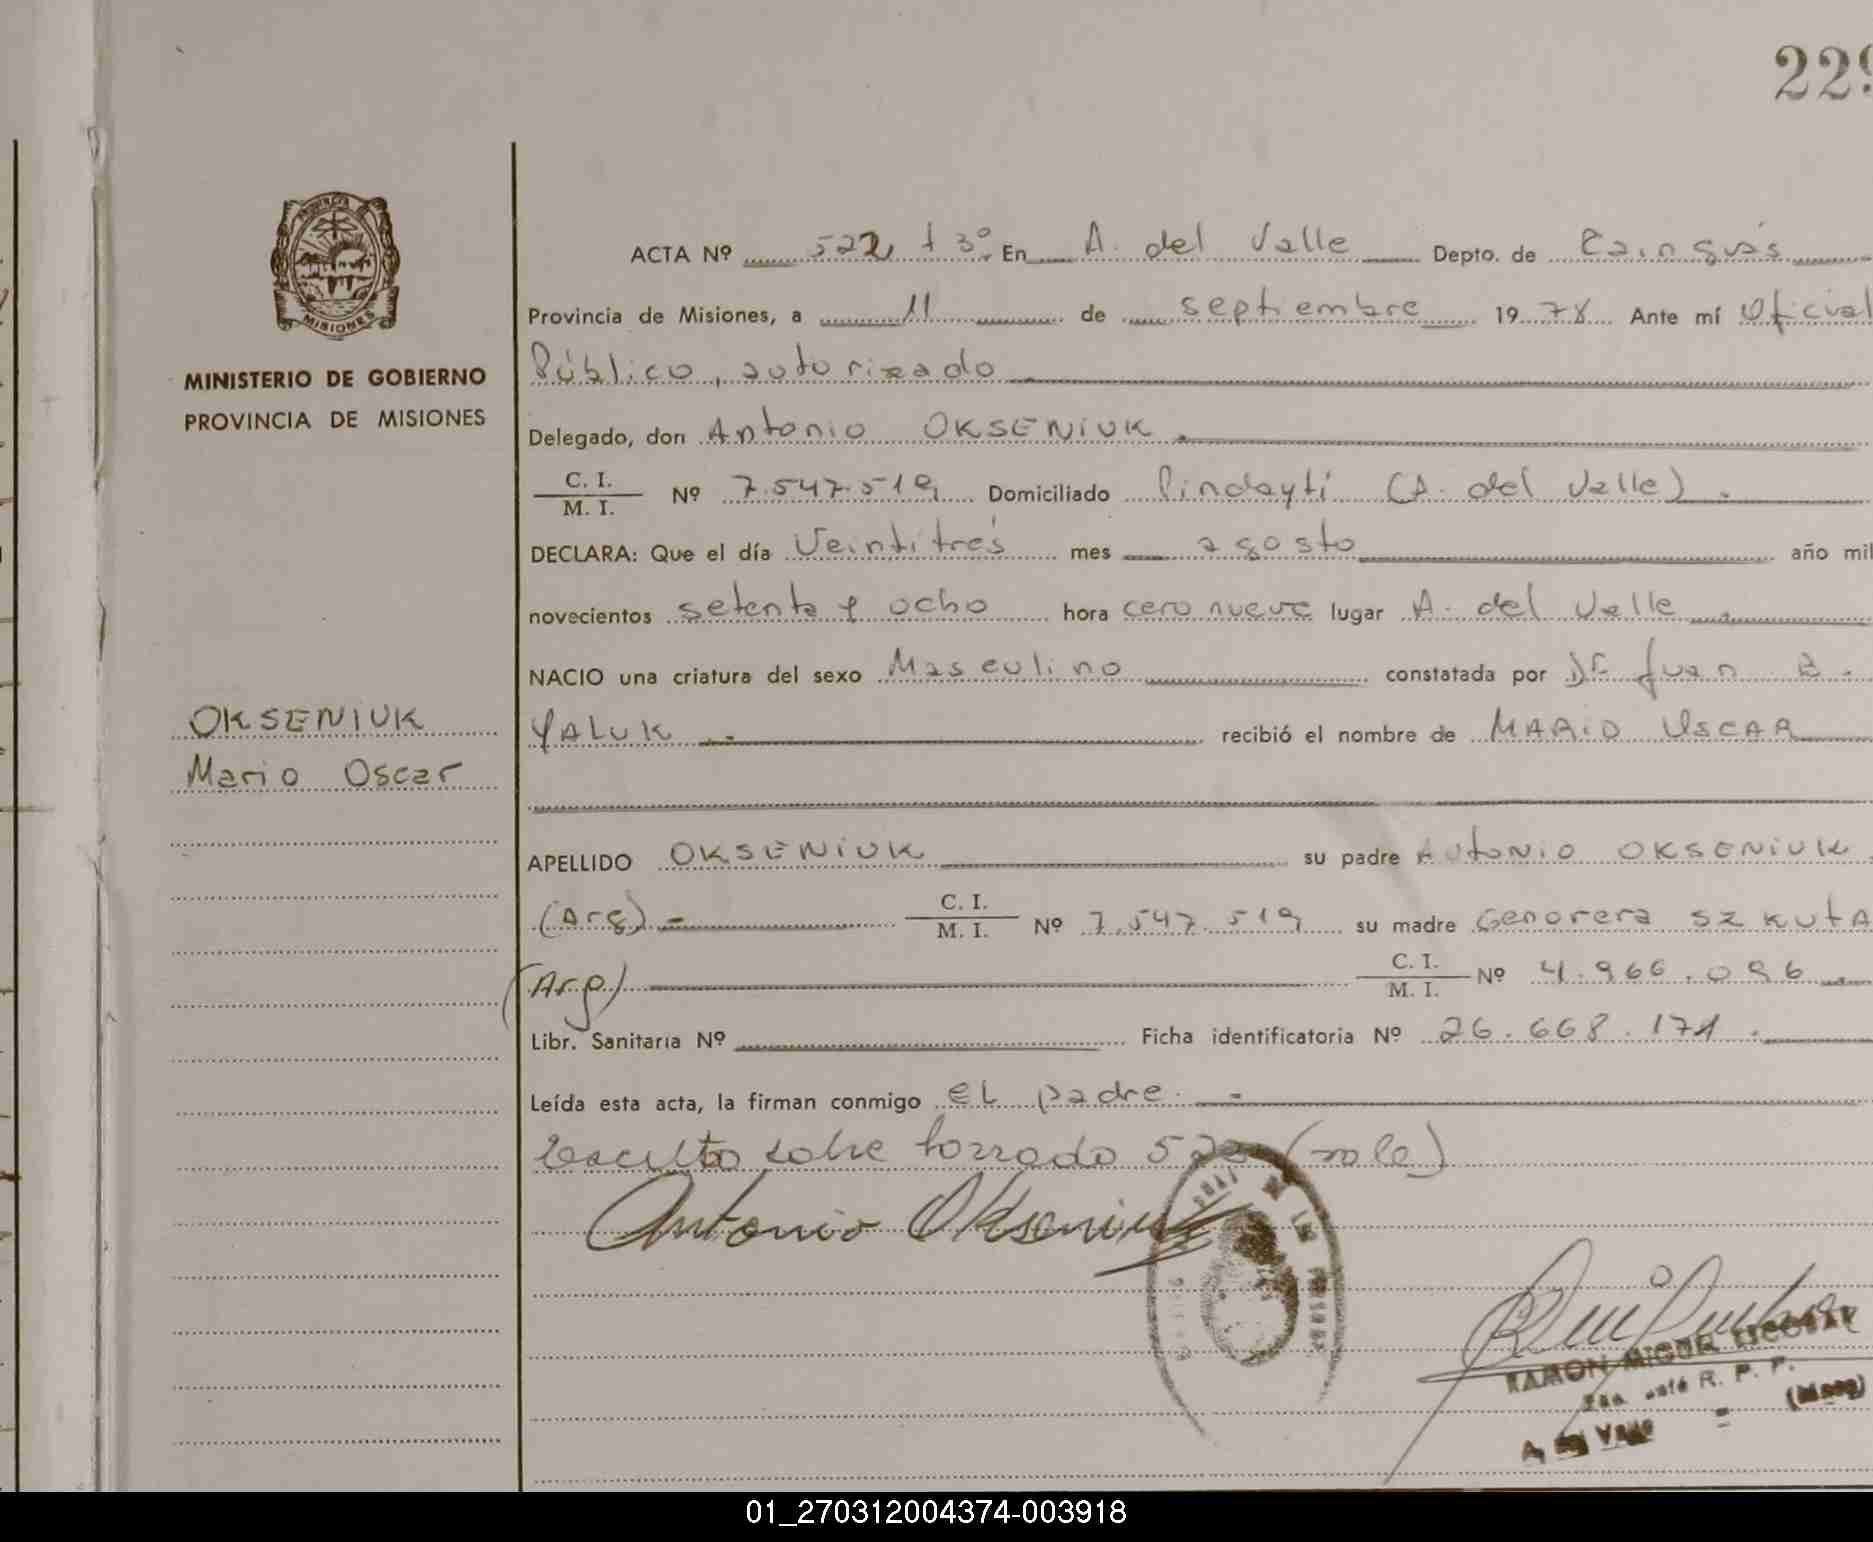 229
ACTA Nº 522 t 3º En A. del Valle Depto. de Cainguás
Provincia de Misiones, a 11 de septiembre 1978 Ante mí Oficial
MINISTERIO DE GOBIERNO
PROVINCIA DE MISIONES
Público, autorizado
Delegado, don Antonio OKSENIUK
C. I.
M. I. Nº 7.547.519 Domiciliado Pindaytí (A. del Valle).
DECLARA: Que el día Veintitrés mes agosto año mil
novecientos setenta y ocho hora cero nueve lugar A. del Valle
NACIO una criatura del sexo Masculino constatada por Dr Juan B.
OKSENIUK
Mario Oscar
YALUK recibió el nombre de MARIO OSCAR
APELLIDO OKSENIUK su padre Antonio OKSENIUK
(Arg) C. I.
M. I. Nº 7.547.519 su madre Genorera SZKUTA
(Arg) C. I.
M. I. Nº 4.966.096
Libr. Sanitaria Nº Ficha identificatoria Nº 26.668.171.
Leída esta acta, la firman conmigo el padre.
Escrito sobre borrado 522 (vale)
Antonio Okseniuk
RAMON MIGUEL ESCOBAR
R. P. P.
A. del Valle (Mnes)
PROVINCIA
MISIONES
01_270312004374-003918